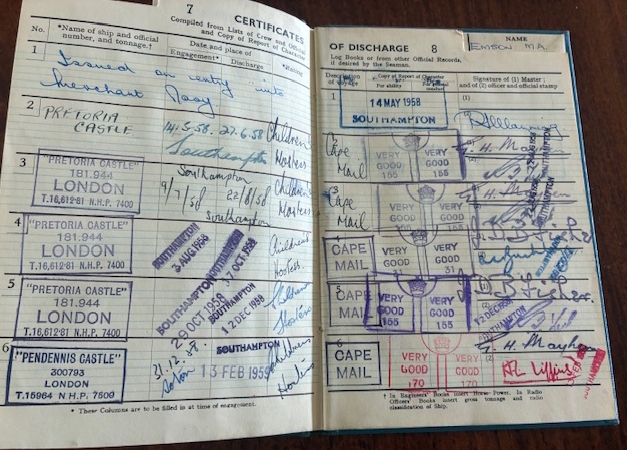 7 CERTIFICATES
Compiled from Lists of Crew and Official
and Copy of Report of Character
No. *Name of ship and official number, and tonnage.† Date and place of Engagement* Discharge *Rating
1 Issued on entry into
Merchant Navy
2 PRETORIA CASTLE 14.5.58. 27.6.58 Children's
Southampton Hostess
3 "PRETORIA CASTLE"
181.944
LONDON
T.16,612·81 N.H.P. 7400
Southampton
9/7/58 22/8/58
Southampton
Children's
Hostess
4 "PRETORIA CASTLE"
181.944
LONDON
T.16,612·81 N.H.P. 7400
SOUTHAMPTON
AUG 1958
SOUTHAMPTON
OCT 1958
Children's
Hostess
5 "PRETORIA CASTLE"
181.944
LONDON
T.16,612·81 N.H.P. 7400
SOUTHAMPTON
OCT 1958
SOUTHAMPTON
12 DEC 1958
Children's
Hostess
6 "PENDENNIS CASTLE"
300793
LONDON
T.15964 N.H.P. 7500
21.12.58.
Soton
SOUTHAMPTON
13 FEB 1959
Childrens
Hostess
* These Columns are to be filled in at time of engagement.
OF DISCHARGE 8
NAME
EMSON M.A.
Log Books or from other Official Records,
if desired by the Seaman.
Description of Voyage Copy of Report of Character For ability For general conduct Signature of (1) Master; and of (2) officer and official stamp
1 14 MAY 1958
SOUTHAMPTON
(1)
2 Cape Mail
VERY GOOD 155 VERY GOOD 155
3 Cape Mail
VERY GOOD 155 VERY GOOD 155
CAPE MAIL
VERY GOOD 31 VERY GOOD 31
5 CAPE MAIL
VERY GOOD 155 VERY GOOD 155
12 DEC 1958
SOUTHAMPTON
6 CAPE MAIL
VERY GOOD 170 VERY GOOD 170
† In Engineers' Books insert Horse Power. In Radio
Officers' Books insert gross tonnage and radio
classification of Ship.